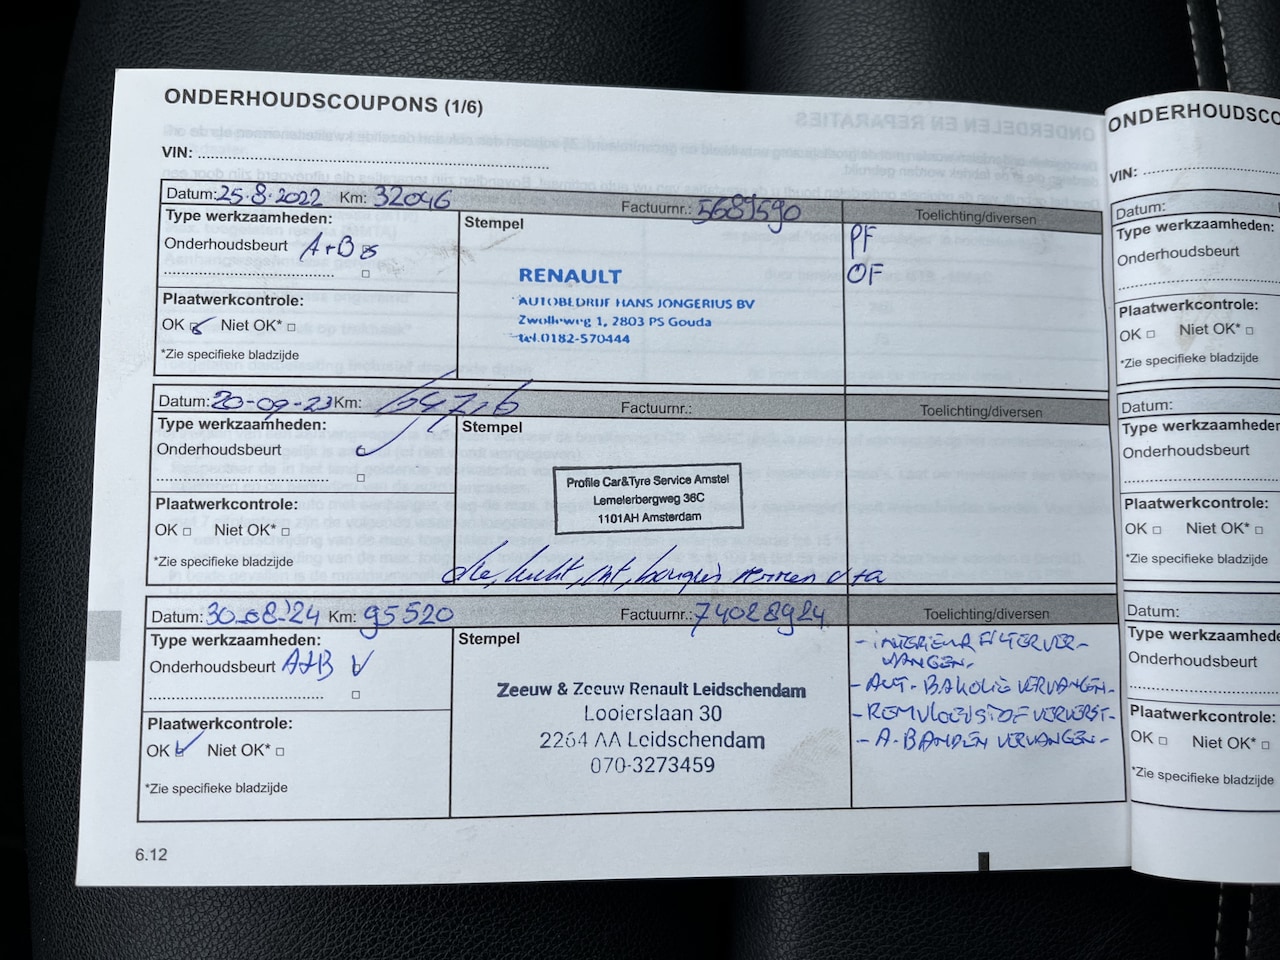 ONDERHOUDSCOUPONS (1/6)
VIN:
Datum: 25-8-2022 Km: 32046 Factuurnr.: 5689590 Toelichting/diversen
Type werkzaamheden:
Onderhoudsbeurt A+B
Plaatwerkcontrole:
OK Niet OK*
*Zie specifieke bladzijde
Stempel
RENAULT
AUTOBEDRIJF HANS JONGERIUS BV
Zwolleweg 1, 2803 PS Gouda
tel.0182-570444
PF
OF
Datum: 20-09-23 Km: Factuurnr.: Toelichting/diversen
Type werkzaamheden:
Onderhoudsbeurt
Plaatwerkcontrole:
OK Niet OK*
*Zie specifieke bladzijde
Stempel
Profile Car&Tyre Service Amstel
Lemelerbergweg 36C
1101AH Amsterdam
olie, lucht, int, bougies remmen v+a
Datum: 30-08-'24 Km: 95520 Factuurnr.: 74028924 Toelichting/diversen
Type werkzaamheden:
Onderhoudsbeurt A+B
Plaatwerkcontrole:
OK Niet OK*
*Zie specifieke bladzijde
Stempel
Zeeuw & Zeeuw Renault Leidschendam
Looierslaan 30
2264 AA Leidschendam
070-3273459
- INTERIEURFILTER VER-
VANGEN.
- AUT. BAKOLIE VERVANGEN.
- REMVLOEISTOF VERVERST.
- A. BANDEN VERVANGEN.
6.12
ONDERHOUDSCO
VIN:
Datum:
Type werkzaamheden:
Onderhoudsbeurt
Plaatwerkcontrole:
OK Niet OK*
*Zie specifieke bladzijde
Datum:
Type werkzaamheden
Onderhoudsbeurt
Plaatwerkcontrole:
OK Niet OK*
*Zie specifieke bladzijde
Datum:
Type werkzaamhede
Onderhoudsbeurt
Plaatwerkcontrole:
OK Niet OK*
*Zie specifieke bladzijde